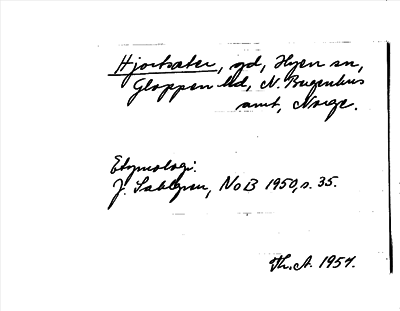 Hjortsæter, gd, Hyen sn,
Gloppen hd, N. Bergenhus
amt, Norge.
Etymologi:
J. Sahlgren, NoB 1950, s. 35.
Th. A. 1957.